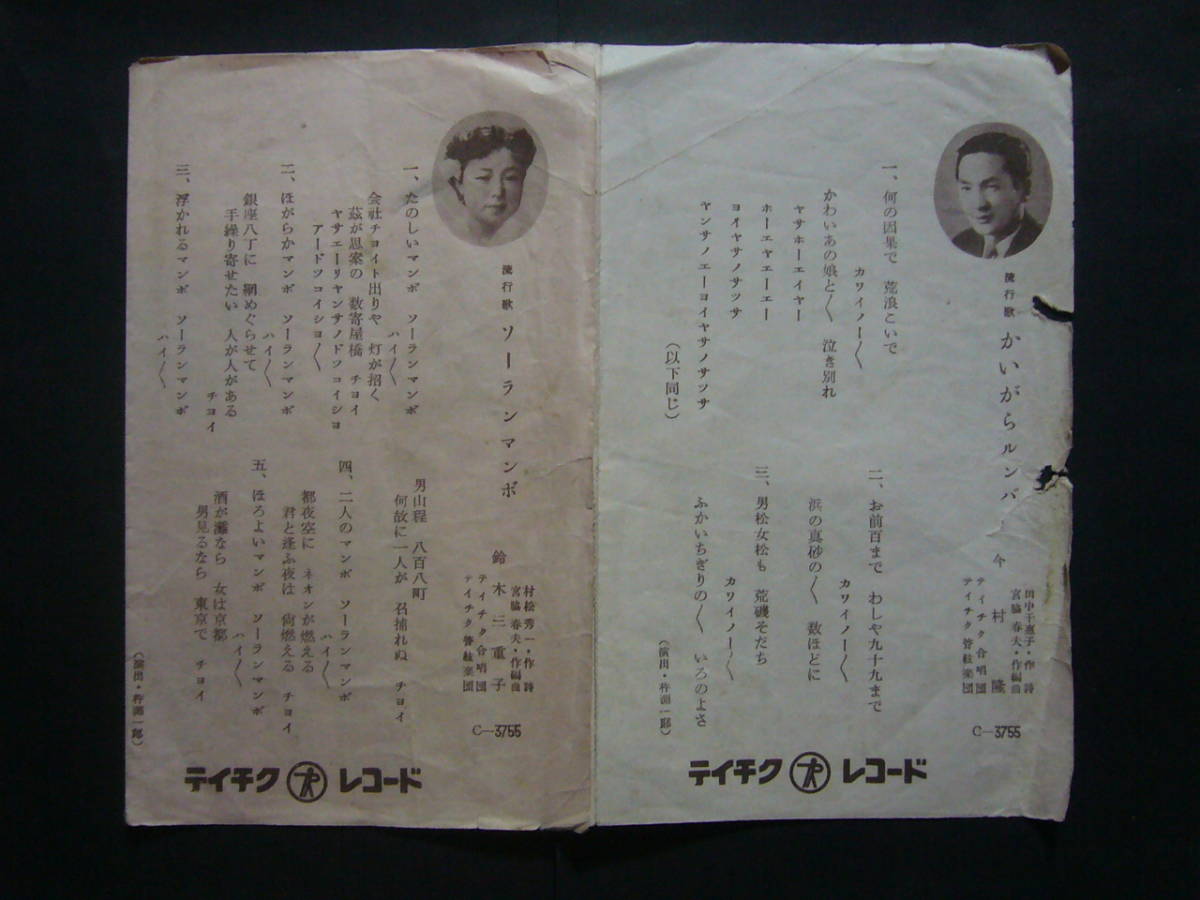 流行歌 かいがらルンバ
今村隆
田中千恵子・作詩
宮脇春夫・作編曲
テイチク合唱団
テイチク管絃楽団
C—3755
一、何の因果で 荒浪こいで
カワイノー〳〵
かわいあの娘と〳〵 泣き別れ
ヤサホーエイヤー
ホーエヤエーエー
ヨイヤサノサッサ
ヤンサノエーヨイヤサノサッサ
(以下同じ)
二、お前百まで わしや九十九まで
カワイノー〳〵
浜の真砂の〳〵 数ほどに
三、男松女松も 荒磯そだち
カワイノー〳〵
ふかいちぎりの〳〵 いろのよさ
(演出・杵淵一郎)
テイチク レコード
流行歌 ソーランマンボ
鈴木三重子
村松秀一・作詩
宮脇春夫・作編曲
テイチク合唱団
テイチク管絃楽団
C—3755
一、たのしいマンボ ソーランマンボ
ハイ〳〵
会社チョイト出りや 灯が招く
茲が思案の 数寄屋橋 チョイ
ヤサエーリヤンサノドツコイショ
アードツコイショ〳〵
二、ほがらかマンボ ソーランマンボ
ハイ〳〵
銀座八丁に 網めぐらせて
手繰り寄せたい 人が人がある
チョイ
三、浮かれるマンボ ソーランマンボ
ハイ〳〵
男山程 八百八町
何故に一人が 召捕れぬ チョイ
四、二人のマンボ ソーランマンボ
ハイ〳〵
都夜空に ネオンが燃える
君と逢ふ夜は 尚燃える チョイ
五、ほろよいマンボ ソーランマンボ
ハイ〳〵
酒が灘なら 女は京都
男見るなら 東京で チョイ
(演出・杵淵一郎)
テイチク レコード